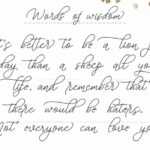 Words of wisdom
's better to be a lion f
day, than a sheep all you
life, and remember that
there would be haters.
Not everyone can love you